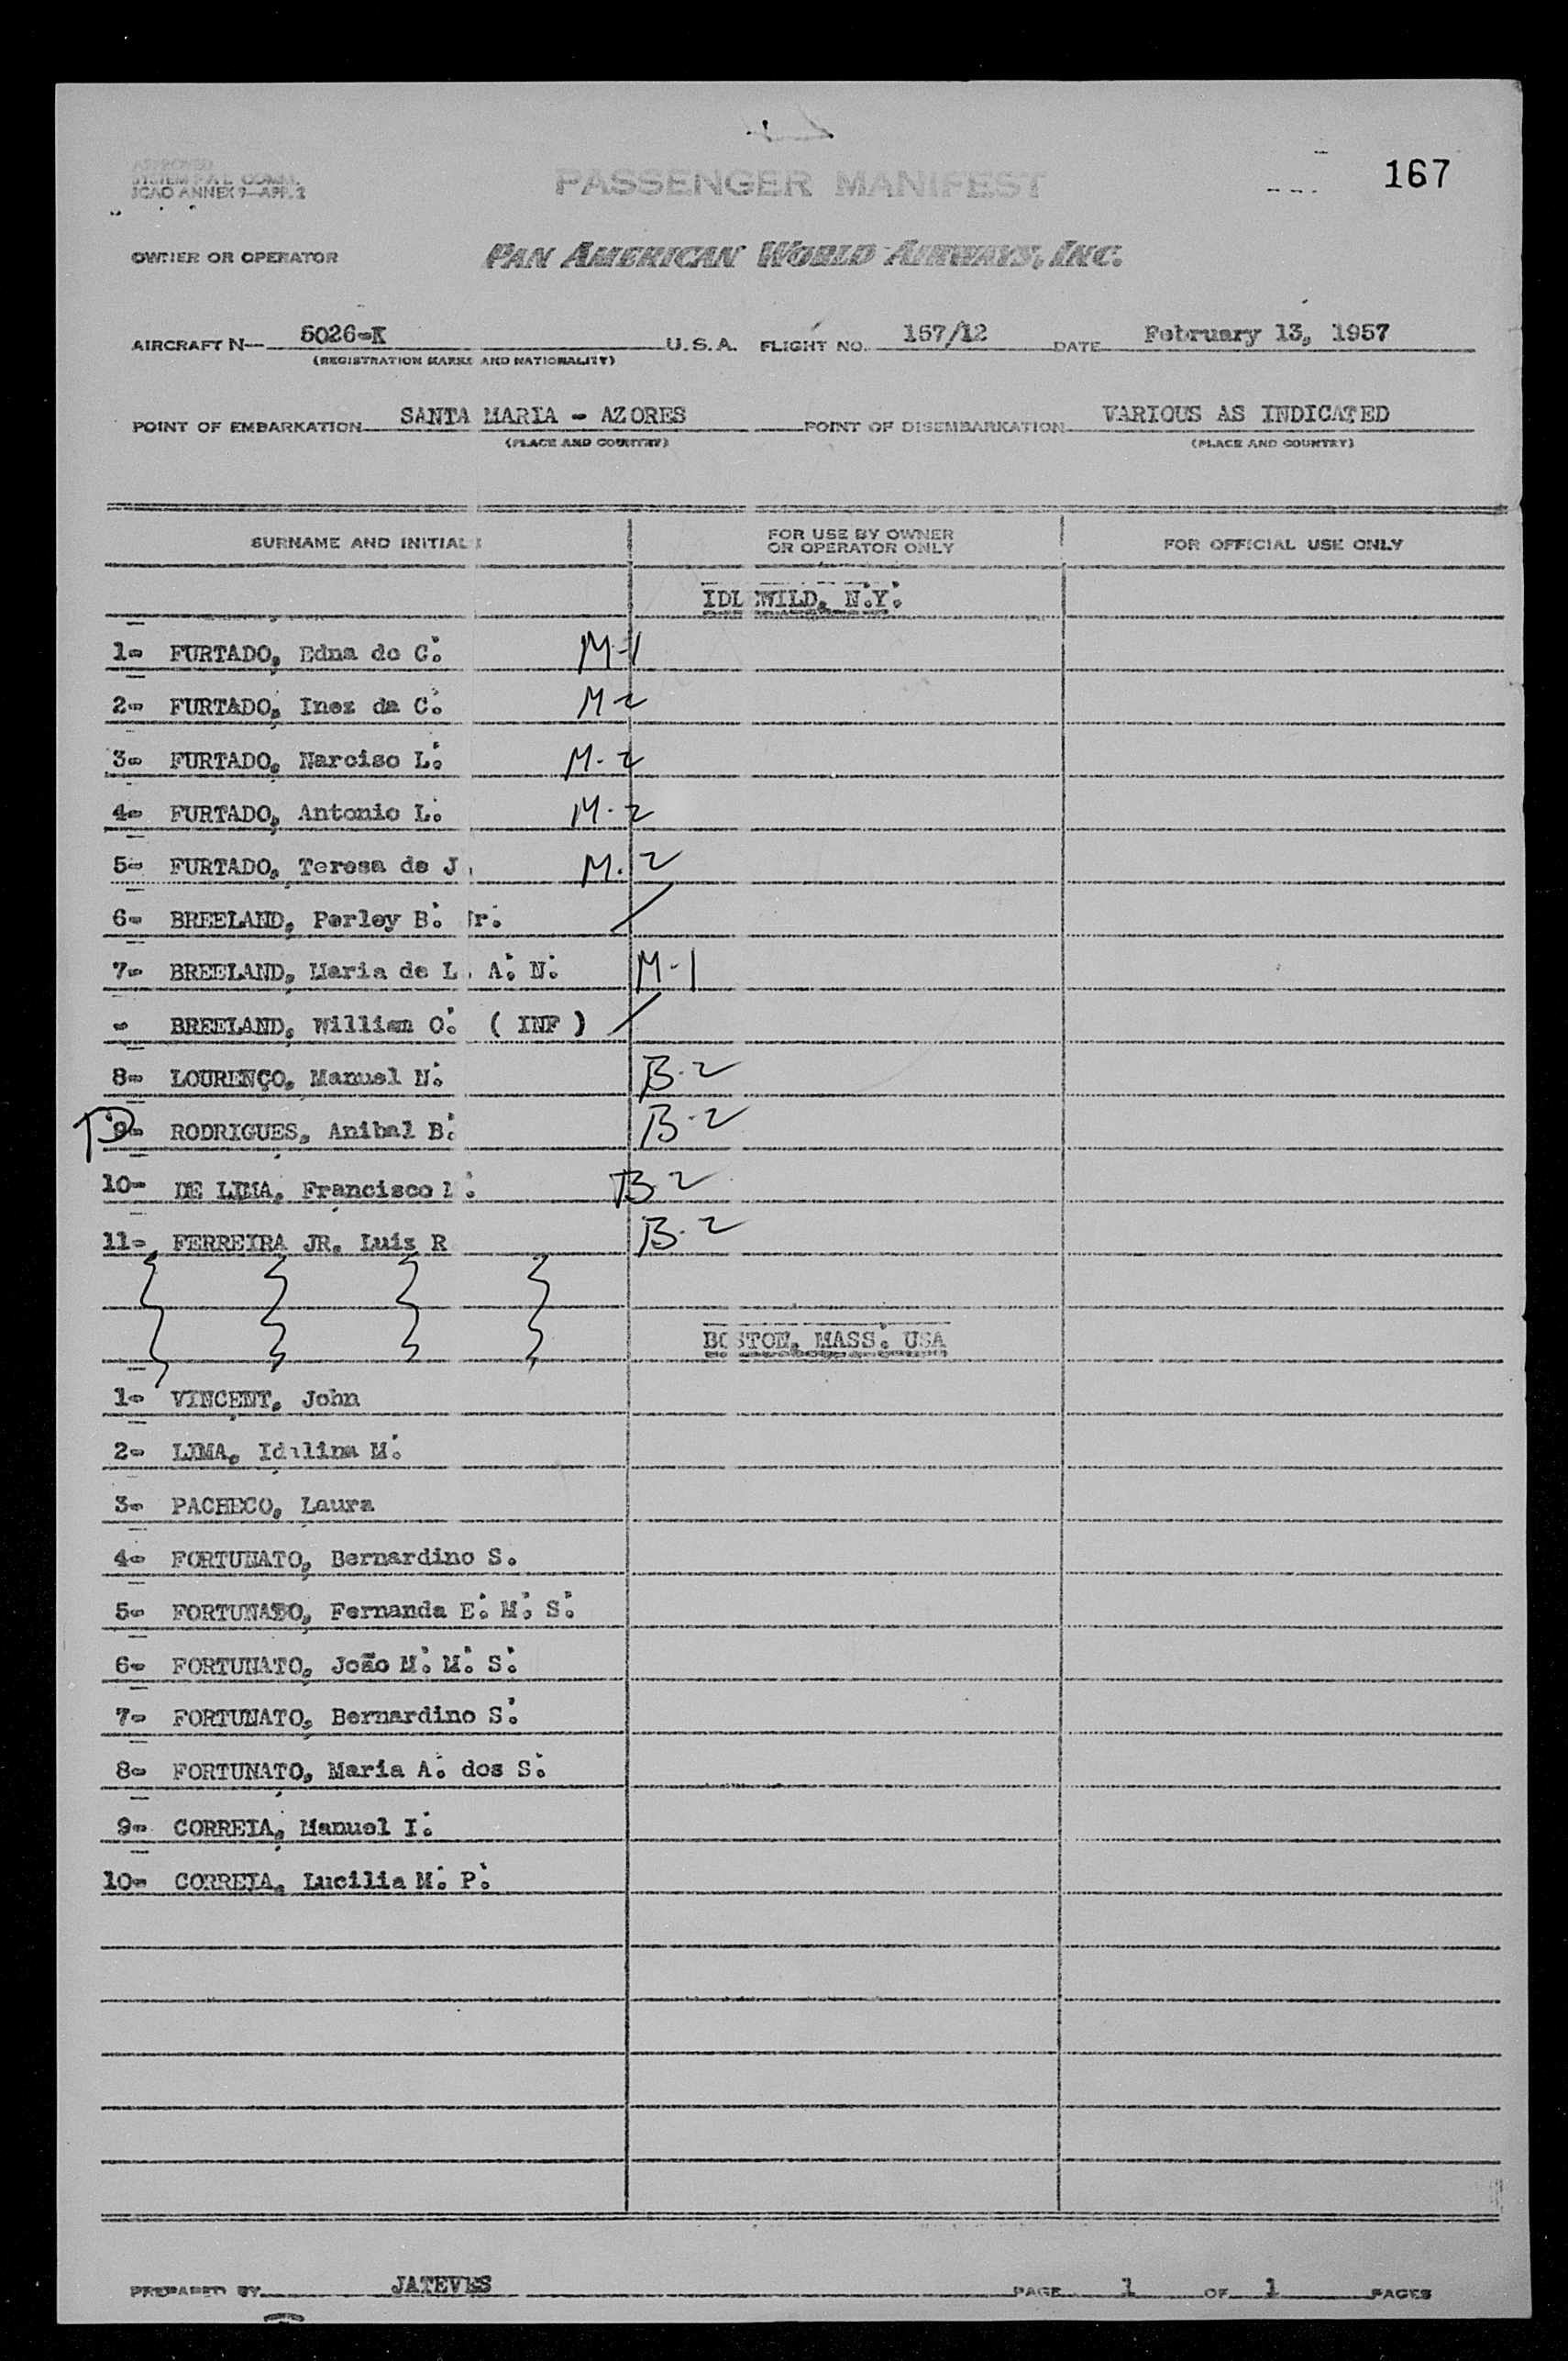 167
APPROVED
ICAO ANNEX 9—APP. 2
PASSENGER MANIFEST
OWNER OR OPERATOR PAN AMERICAN WORLD AIRWAYS, INC.
AIRCRAFT N— 5026-K U.S.A. FLIGHT NO. 157/12 DATE February 13, 1957
(REGISTRATION MARKS AND NATIONALITY)
POINT OF EMBARKATION SANTA MARIA - AZORES POINT OF DISEMBARKATION VARIOUS AS INDICATED
(PLACE AND COUNTRY) (PLACE AND COUNTRY)
SURNAME AND INITIALS FOR USE BY OWNER OR OPERATOR ONLY FOR OFFICIAL USE ONLY
IDLEWILD, N.Y.
1- FURTADO, Edna do C. M-1
2- FURTADO, Inez da C. M-2
3- FURTADO, Narciso L. M-2
4- FURTADO, Antonio L. M-2
5- FURTADO, Teresa de J. M-2
6- BREELAND, Perley B. Jr. /
7- BREELAND, Maria de L. A. N. M-1
- BREELAND, William O. ( INF ) /
8- LOURENÇO, Manuel N. B-2
9- RODRIGUES, Anibal B. B-2
10- DE LIMA, Francisco I. B-2
11- FERREIRA JR. Luis R B-2
BOSTON, MASS. USA
1- VINCENT, John
2- LIMA, Idalina M.
3- PACHECO, Laura
4- FORTUNATO, Bernardino S.
5- FORTUNATO, Fernanda E. M. S.
6- FORTUNATO, João M. M. S.
7- FORTUNATO, Bernardino S.
8- FORTUNATO, Maria A. dos S.
9- CORREIA, Manuel I.
10- CORREIA, Lucilia M. P.
PREPARED BY JATEVES PAGE 1 OF 1 PAGES